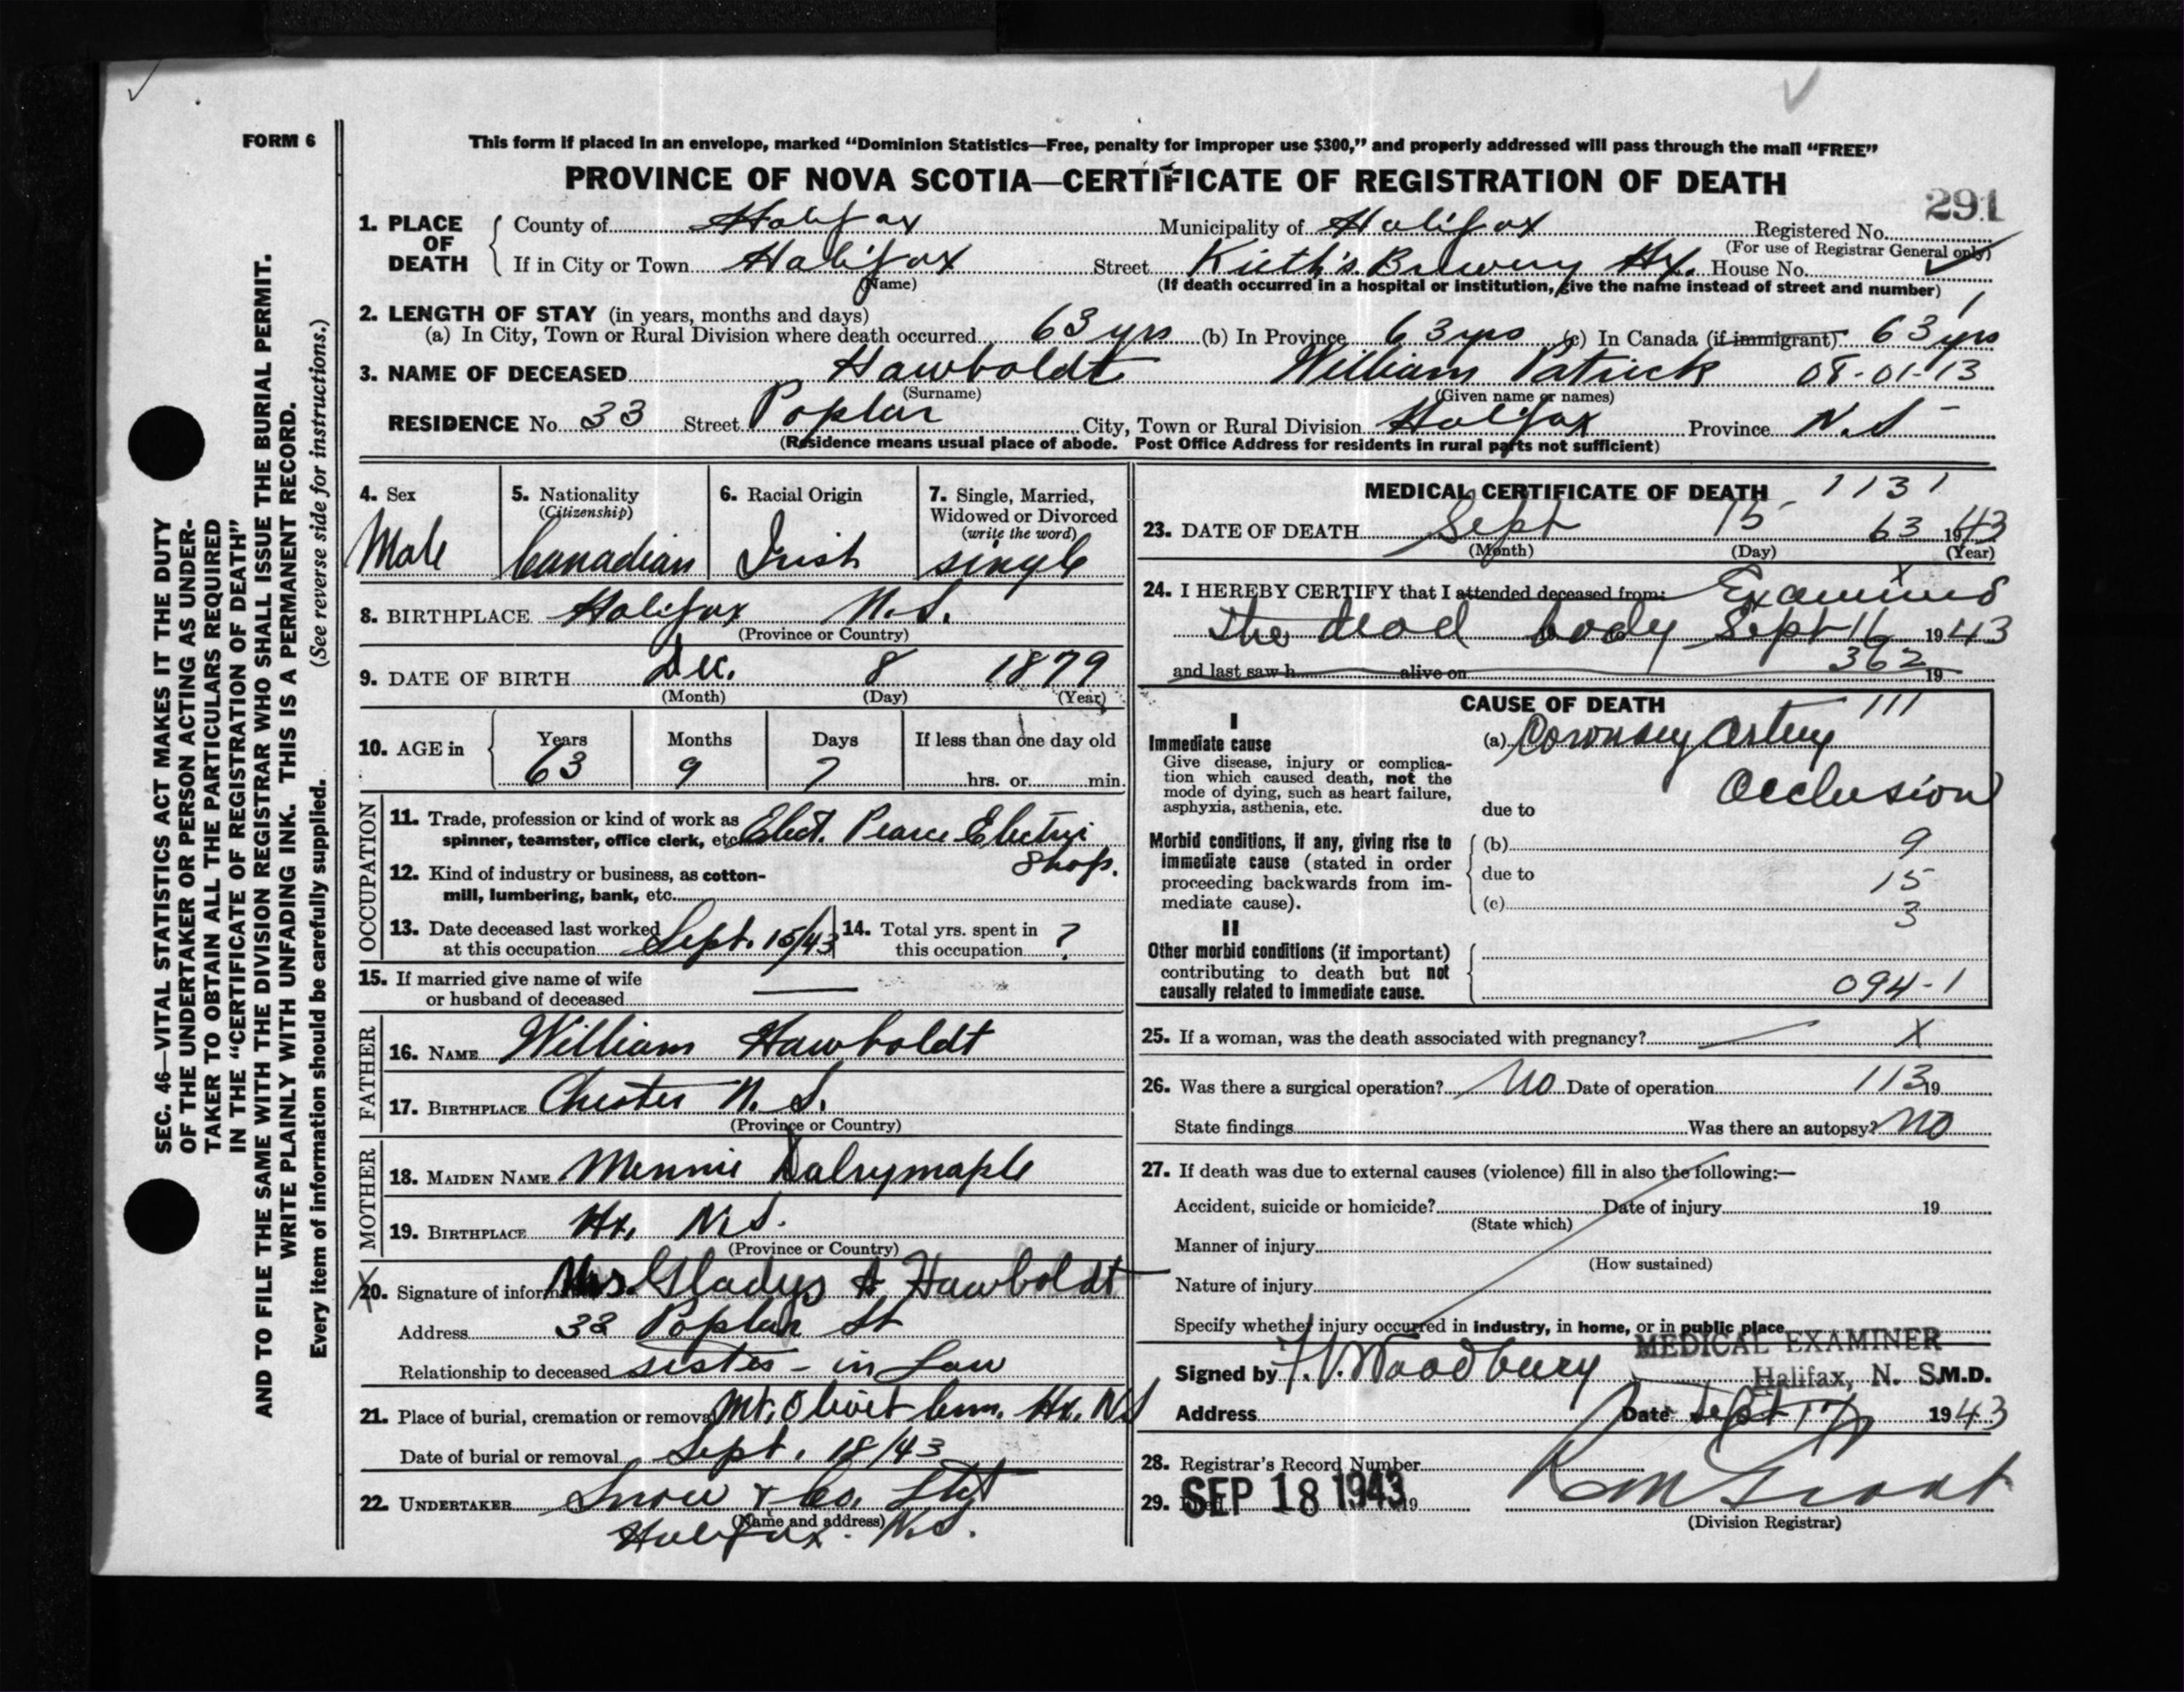 FORM 6
This form if placed in an envelope, marked "Dominion Statistics—Free, penalty for improper use $300," and properly addressed will pass through the mail "FREE"
PROVINCE OF NOVA SCOTIA—CERTIFICATE OF REGISTRATION OF DEATH
291
1. PLACE OF DEATH
County of Halifax Municipality of Halifax Registered No.
(For use of Registrar General only)
If in City or Town Halifax Street Kieth's Brewery Hx. House No.
(Name) (If death occurred in a hospital or institution, give the name instead of street and number)
2. LENGTH OF STAY (in years, months and days)
(a) In City, Town or Rural Division where death occurred 63 yrs (b) In Province 63 yrs (c) In Canada (if immigrant) 63 yrs
3. NAME OF DECEASED Hawboldt William Patrick 08-01-13
(Surname) (Given name or names)
RESIDENCE No 33 Street Poplar City, Town or Rural Division Halifax Province N.S
(Residence means usual place of abode. Post Office Address for residents in rural parts not sufficient)
4. Sex
Male
5. Nationality
(Citizenship)
Canadian
6. Racial Origin
Irish
7. Single, Married,
Widowed or Divorced
(write the word)
single
8. BIRTHPLACE Halifax N.S.
(Province or Country)
9. DATE OF BIRTH Dec. 8 1879
(Month) (Day) (Year)
10. AGE in
Years Months Days If less than one day old
63 9 7 hrs. or min.
OCCUPATION
11. Trade, profession or kind of work as
spinner, teamster, office clerk, etc. Elect. Pearce Electri
Shop.
12. Kind of industry or business, as cotton-
mill, lumbering, bank, etc.
13. Date deceased last worked
at this occupation Sept. 15/43
14. Total yrs. spent in
this occupation ?
15. If married give name of wife
or husband of deceased
FATHER
16. NAME William Hawboldt
17. BIRTHPLACE Chester N.S.
(Province or Country)
MOTHER
18. MAIDEN NAME Minnie Dalrymaple
19. BIRTHPLACE Hx, N.S.
(Province or Country)
20. Signature of informant Mrs. Gladys A Hawboldt
Address 33 Poplar St
Relationship to deceased sister-in Law
21. Place of burial, cremation or removal Mt. Olivet Cem. Hx. NS
Date of burial or removal Sept. 18/43
22. UNDERTAKER Snow & Co. Ltd
(Name and address)
Halifax. N.S.
MEDICAL CERTIFICATE OF DEATH 1131
23. DATE OF DEATH Sept 15 63 1943
(Month) (Day) (Year)
24. I HEREBY CERTIFY that I attended deceased from: Examined
the dead body Sept 16 1943
362
and last saw h alive on 19
CAUSE OF DEATH 111
I
Immediate cause
Give disease, injury or complica-
tion which caused death, not the
mode of dying, such as heart failure,
asphyxia, asthenia, etc.
(a) Coronary Artery
Occlusion
due to
Morbid conditions, if any, giving rise to
immediate cause (stated in order
proceeding backwards from im-
mediate cause).
(b) 9
due to 15
(c) 3
II
Other morbid conditions (if important)
contributing to death but not
causally related to immediate cause.
094-1
25. If a woman, was the death associated with pregnancy? X
26. Was there a surgical operation? No Date of operation 113 19
State findings Was there an autopsy? No
27. If death was due to external causes (violence) fill in also the following:—
Accident, suicide or homicide? Date of injury 19
(State which)
Manner of injury
(How sustained)
Nature of injury
Specify whether injury occurred in industry, in home, or in public place
MEDICAL EXAMINER
Signed by Woodbury Halifax, N. S. M.D.
Address Date Sept 17 1943
28. Registrar's Record Number
29. SEP 18 1943 19
(Division Registrar)
SEC. 46—VITAL STATISTICS ACT MAKES IT THE DUTY
OF THE UNDERTAKER OR PERSON ACTING AS UNDER-
TAKER TO OBTAIN ALL THE PARTICULARS REQUIRED
IN THE "CERTIFICATE OF REGISTRATION OF DEATH"
AND TO FILE THE SAME WITH THE DIVISION REGISTRAR WHO SHALL ISSUE THE BURIAL PERMIT.
WRITE PLAINLY WITH UNFADING INK. THIS IS A PERMANENT RECORD.
Every item of information should be carefully supplied. (See reverse side for instructions.)